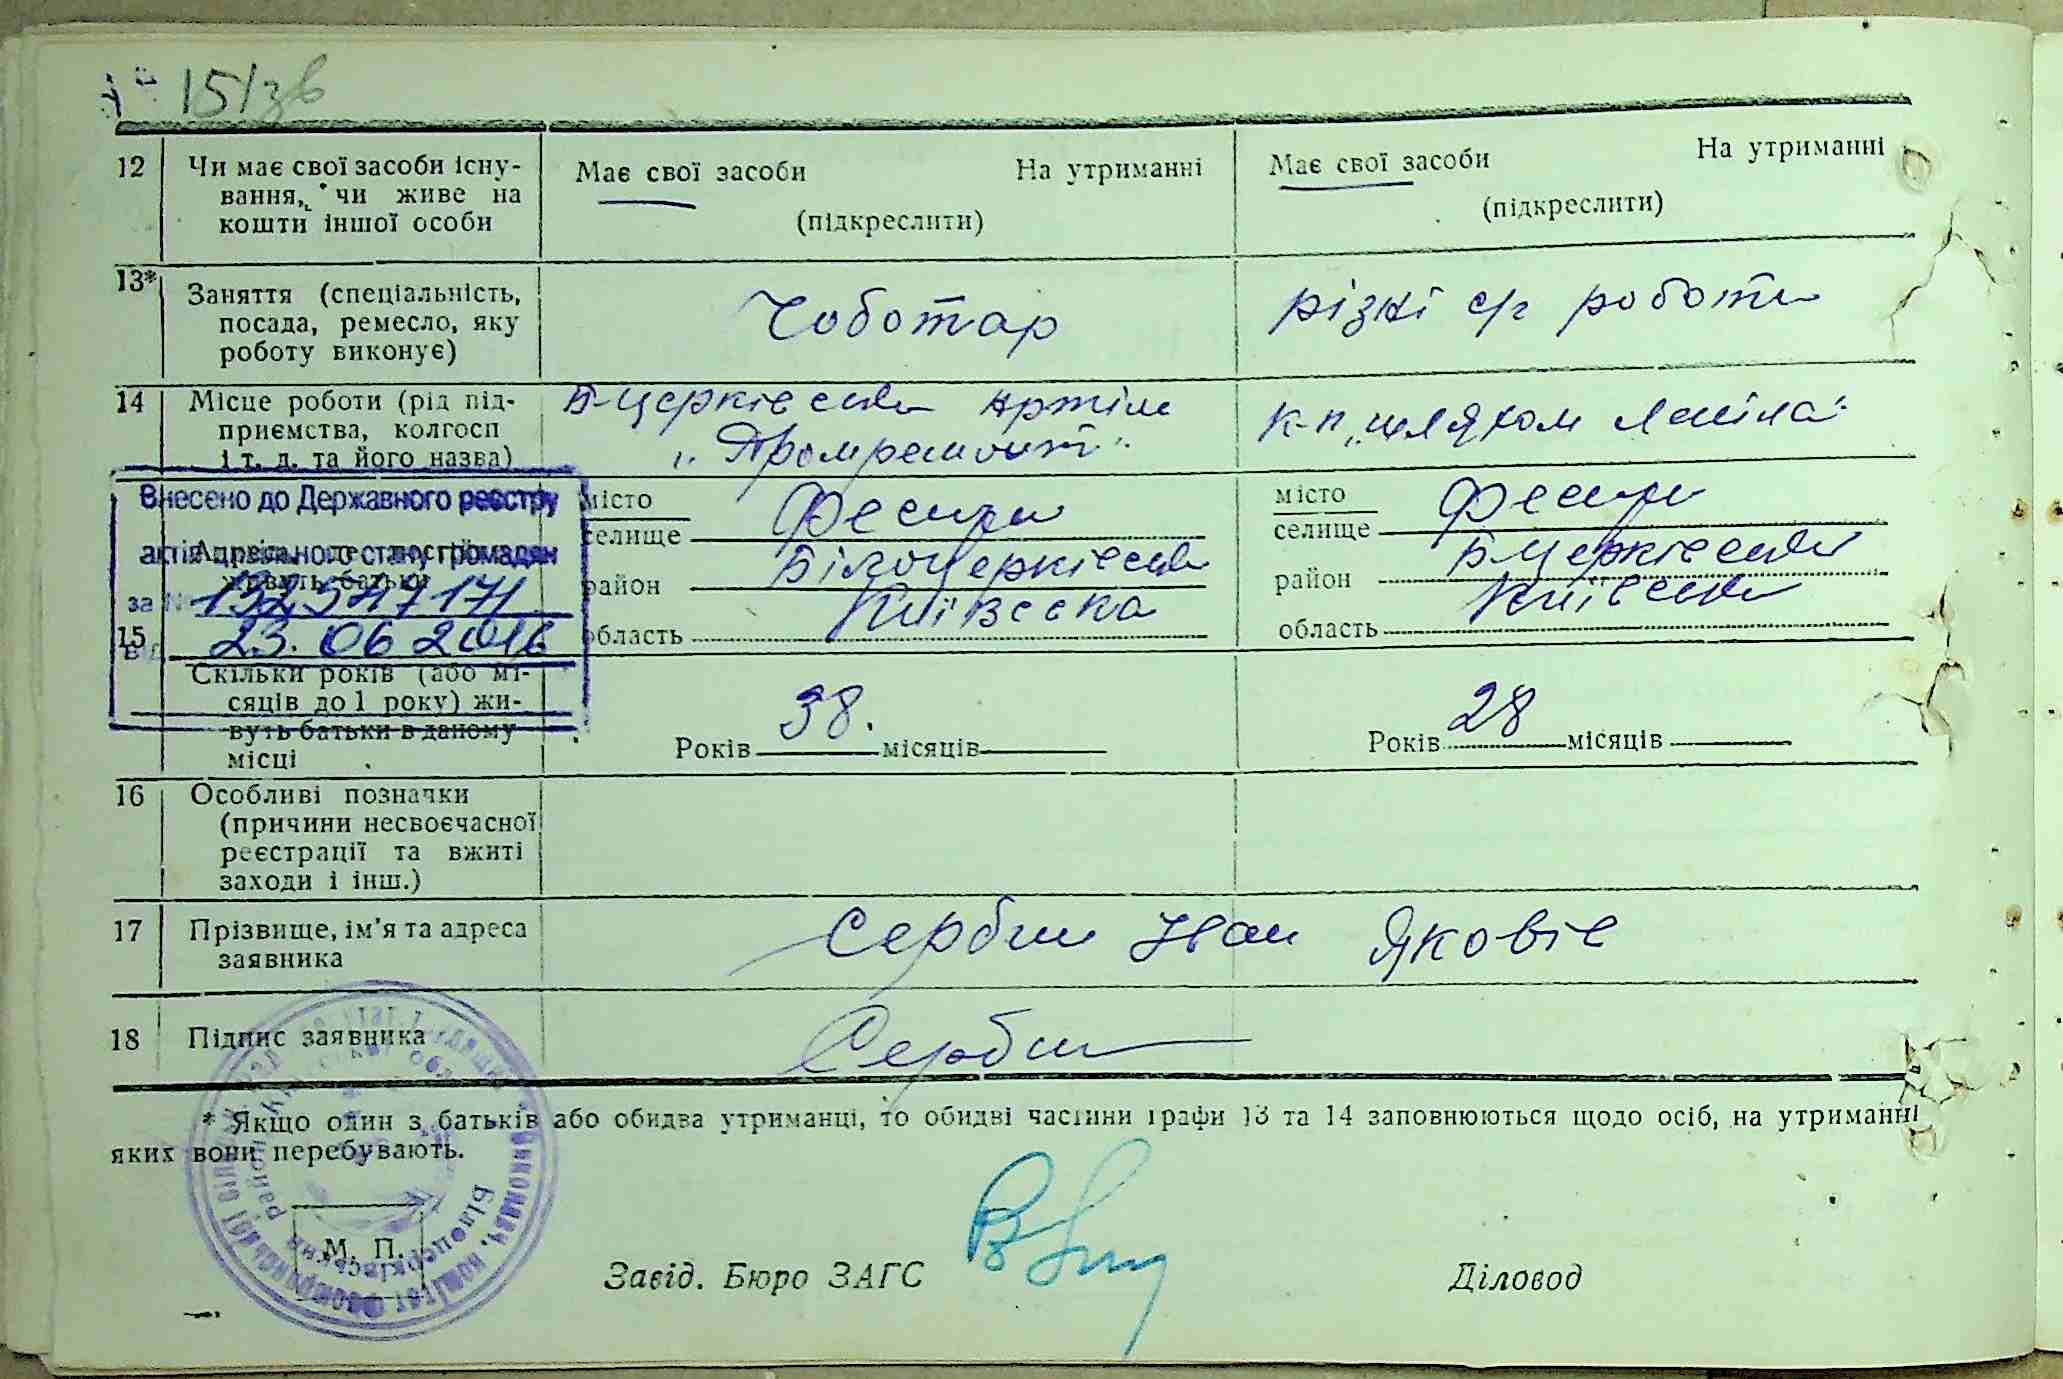 15 зв
12 Чи має свої засоби існу- Має свої засоби На утриманні Має свої засоби На утриманні
вання, чи живе на
кошти іншої особи (підкреслити) (підкреслити)
13* Заняття (спеціальність, Чоботар різні с/г роботи
посада, ремесло, яку
роботу виконує)
14 Місце роботи (рід під- Б-церківська артіль к-п „шляхом Леніна"
приємства, колгосп „Промремонт"
і т. д. та його назва)
Внесено до Державного реєстру
актів цивільного стану громадян
за №
23.06 2016
15 Адреса, де постійно
живуть батьки
місто Фесюри місто Фесюри
селище селище
район Білоцерківська район Бцерківська
область Київська область Київська
Скільки років (або мі-
сяців до 1 року) жи-
вуть батьки в даному
місці Років 38. місяців Років 28 місяців
16 Особливі позначки
(причини несвоєчасної
реєстрації та вжиті
заходи і інш.)
17 Прізвище, ім'я та адреса Сербин Іван Яковіч
заявника
18 Підпис заявника Сербин
* Якщо один з батьків або обидва утриманці, то обидві частини графи 13 та 14 заповнюються щодо осіб, на утриманні
яких вони перебувають.
М. П.
Завід. Бюро ЗАГС Діловод